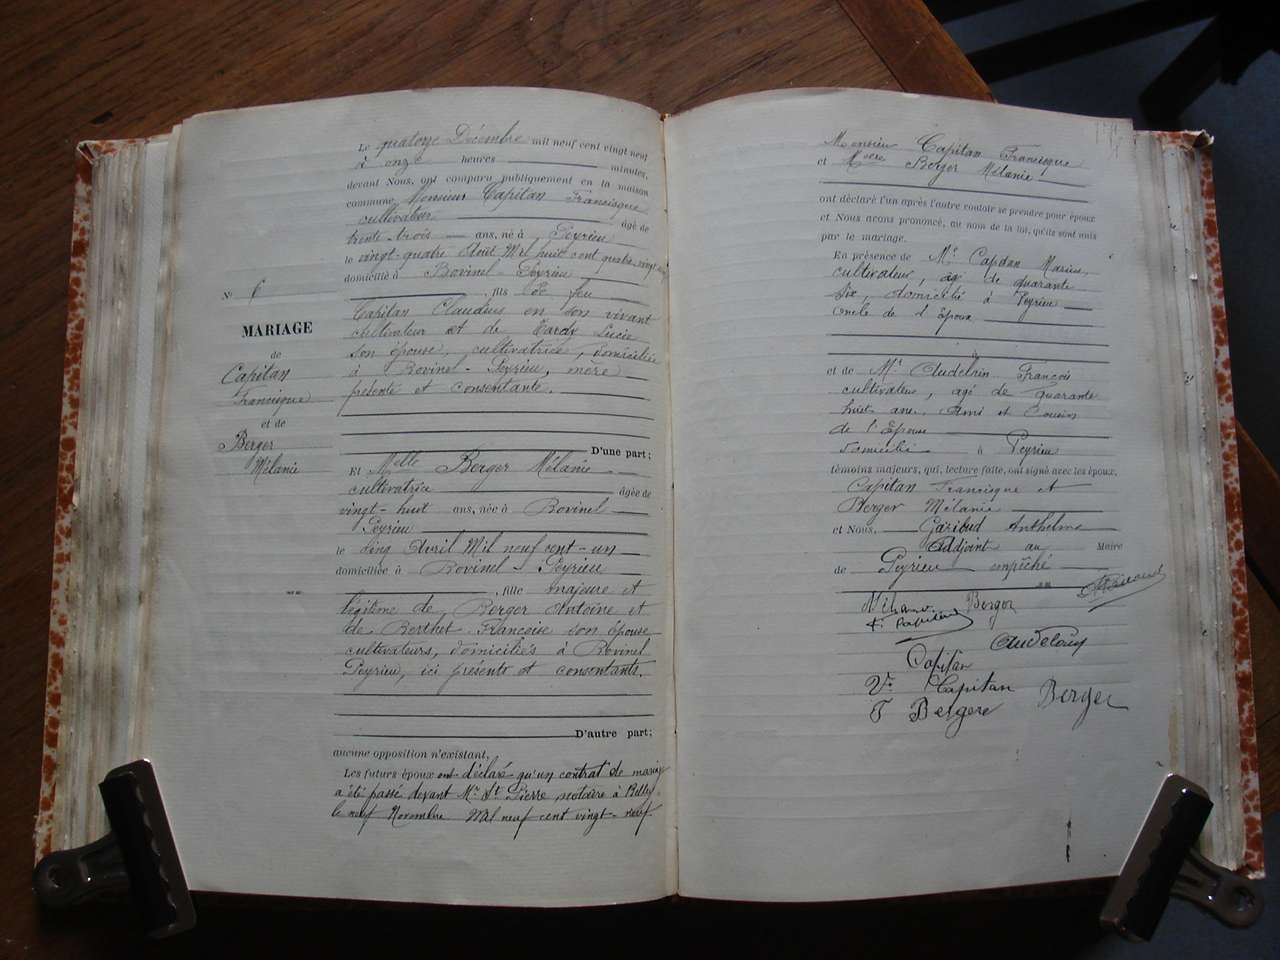 Le quatorze Décembre mil neuf cent vingt neuf
à onze heures minutes,
devant Nous, ont comparu publiquement en la maison
commune Monsieur Capitan Francisque
cultivateur âgé de
trente-trois ans, né à Peyrieu
le vingt-quatre Août Mil huit cent quatre-vingt
domicilié à Bovinel-Peyrieu
, fils de feu
Capitan Claudius en son vivant
cultivateur et de Lucie
son épouse, cultivatrice, domiciliée
à Bovinel-Peyrieu, mère
présente et consentante.
D'une part;
Et Melle Berger Mélanie
cultivatrice âgée de
vingt-huit ans, née à Bovinel
Peyrieu
le cinq Avril Mil neuf cent-un
domiciliée à Bovinel-Peyrieu
, fille majeure et
légitime de Berger Antoine et
de Berthet Françoise son épouse
cultivateurs, domiciliés à Bovinel
Peyrieu, ici présents et consentants.
D'autre part;
aucune opposition n'existant,
Les futurs époux ont déclaré qu'un contrat de mariage
a été passé devant Me St Pierre, notaire à Belley
le neuf Novembre Mil neuf cent vingt-neuf
No 6
MARIAGE
de
Capitan
Francisque
et de
Berger
Mélanie
Monsieur Capitan Francisque
et Melle Berger Mélanie
ont déclaré l'un après l'autre vouloir se prendre pour époux
et Nous avons prononcé, au nom de la loi, qu'ils sont unis
par le mariage.
En présence de Mr Capitan Marius,
cultivateur, âgé de quarante
six, domicilié à Peyrieu
oncle de l'Epoux
et de Mr Audelrin François
cultivateur, âgé de quarante
huit ans, Ami et Cousin
de l'Epouse
domicilié à Peyrieu
témoins majeurs, qui, lecture faite, ont signé avec les époux,
Capitan Francisque et
Berger Mélanie
et Nous, Garibud Anthelme
Adjoint au Maire
de Peyrieu empêché
Mélanie Berger
F. Capitan
Capitan
Ve Capitan
F Bergere
Berger